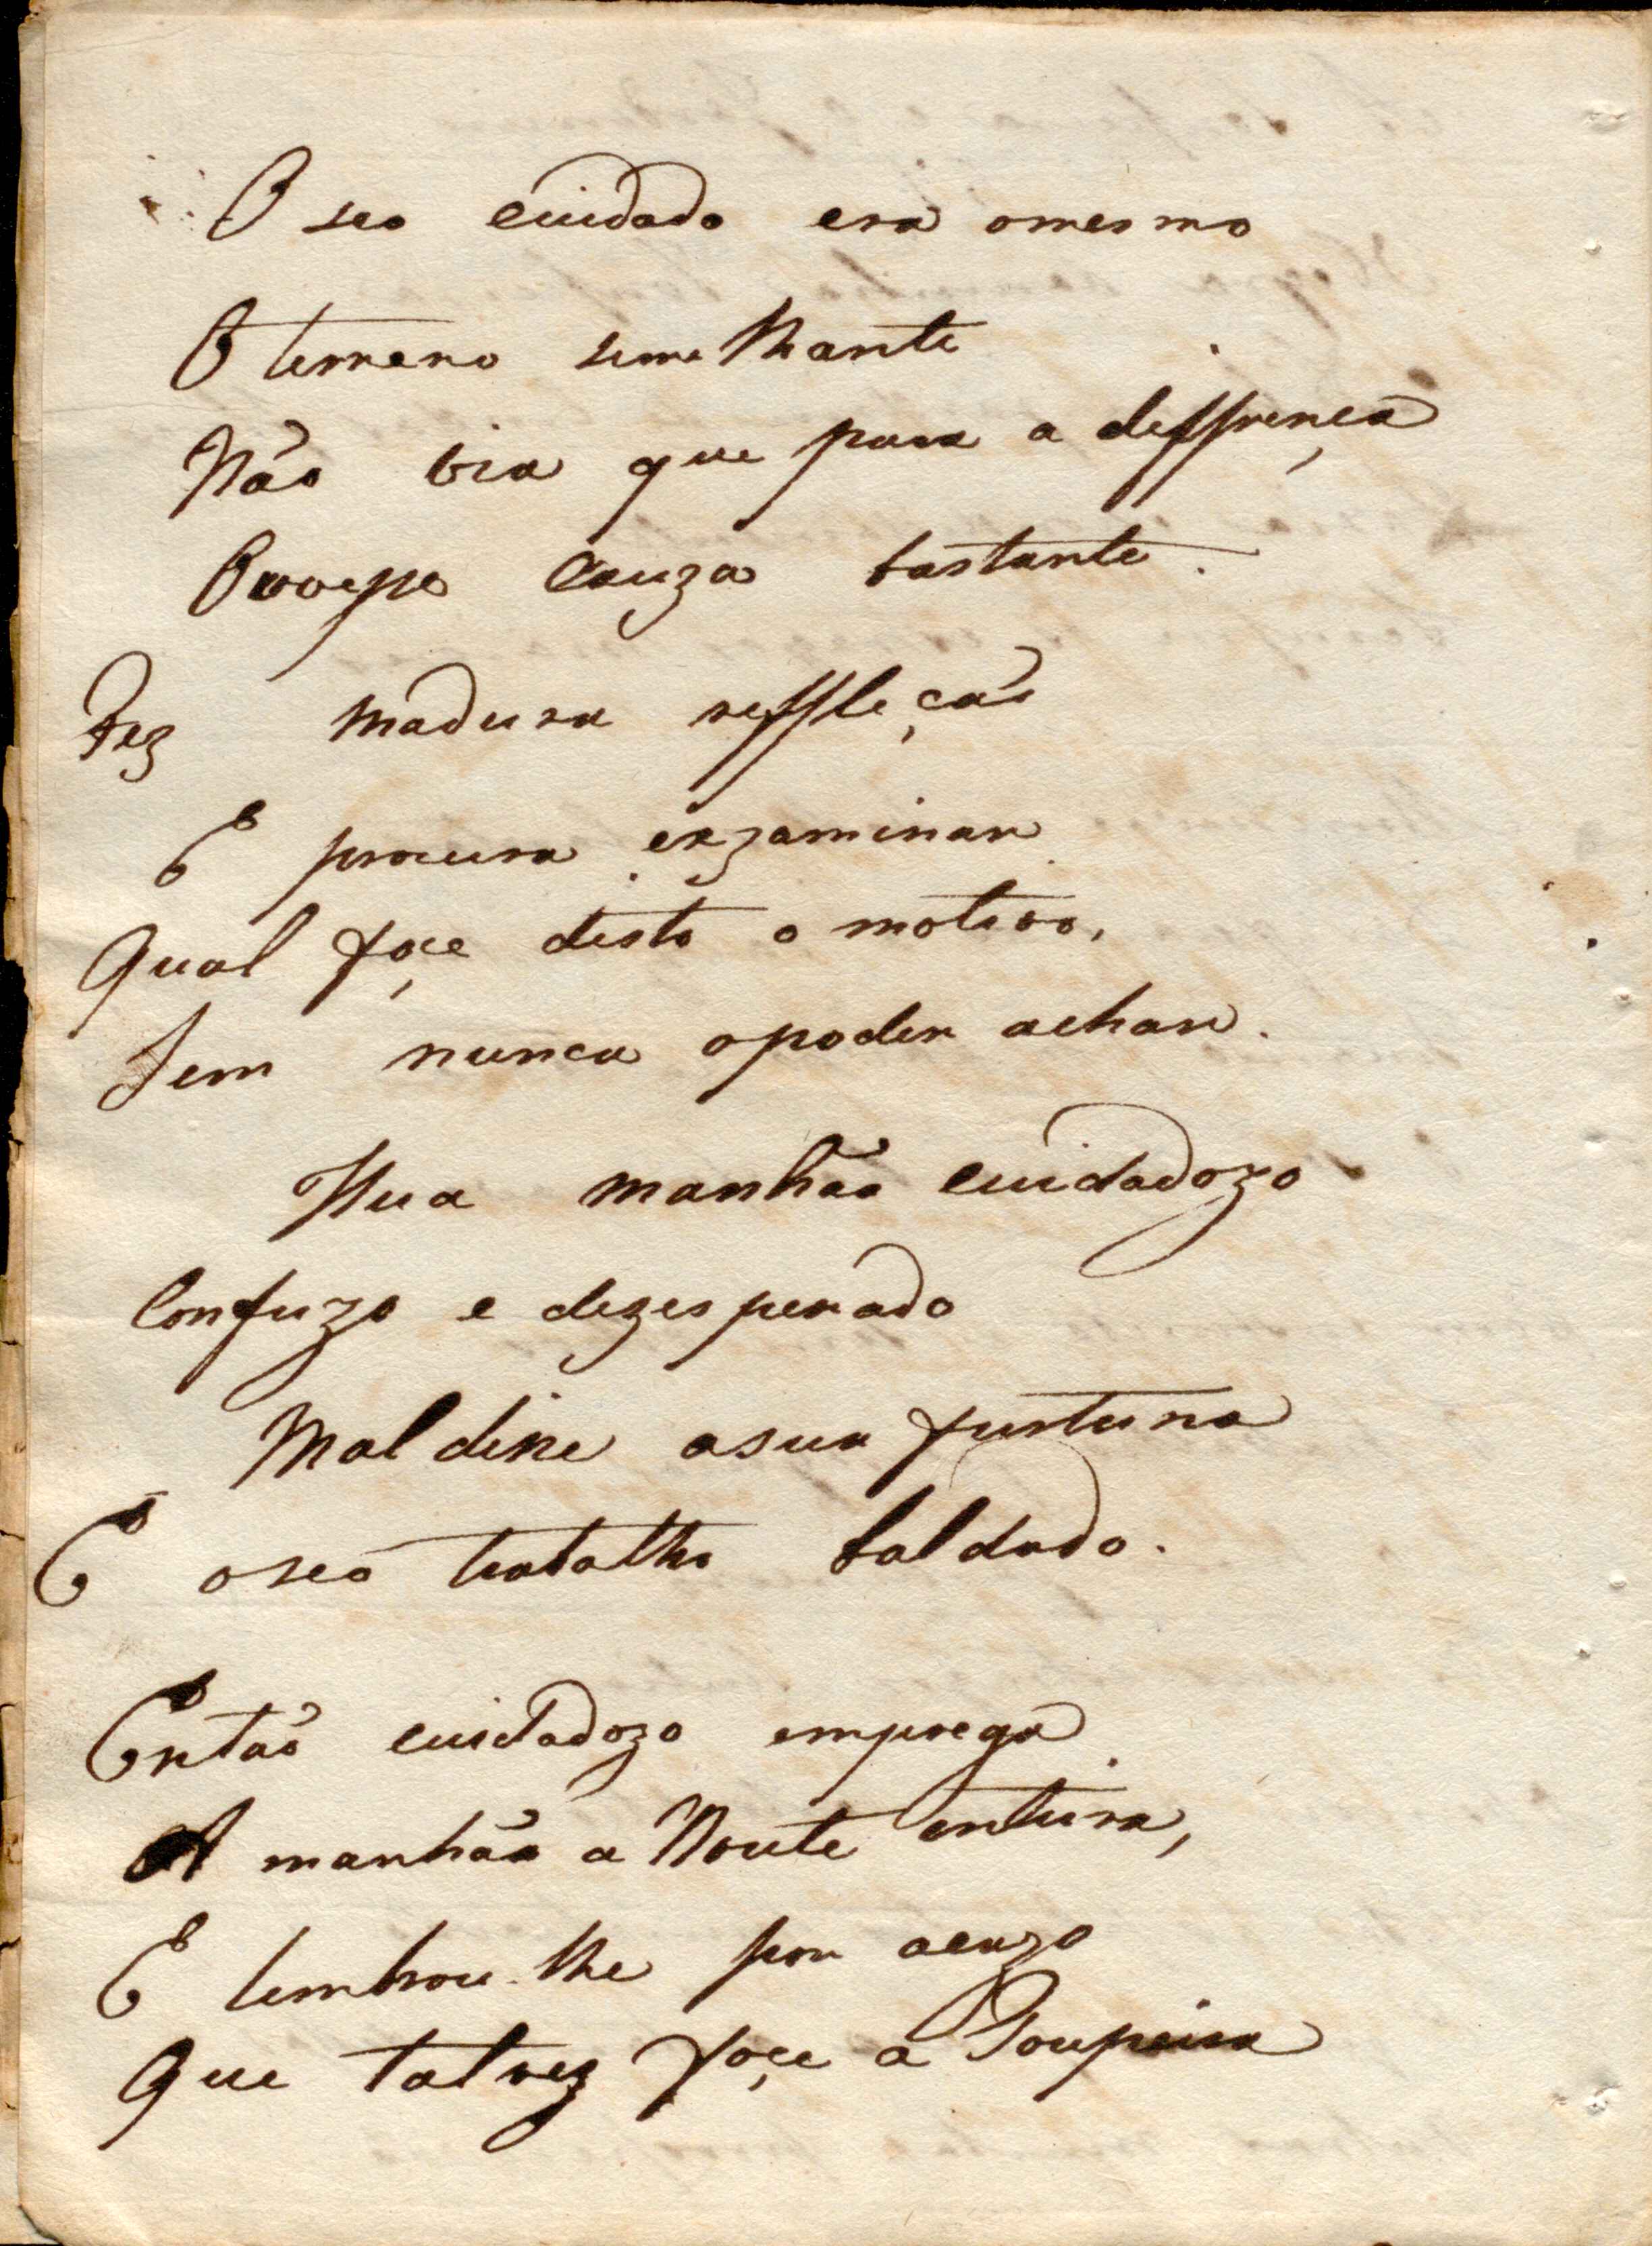 O seo cuidado era omesmo
O terreno seme lhante
Não via que para a deffrença
Ouvesse cauza bastante.
Fez madura refflecção
E procura exzaminar
Qual foçe disto o motivo,
Sem nunca opoder achar.
Hua manhãa cuidadozo
Confuzo e dezesperado
Mal dice asua furtuna
E oseo trabalho baldado.
Então cuidadozo emprega
A manhãa a Noute enteira,
E lembrou-lhe por acazo
Que talvez foçe a Toupeira